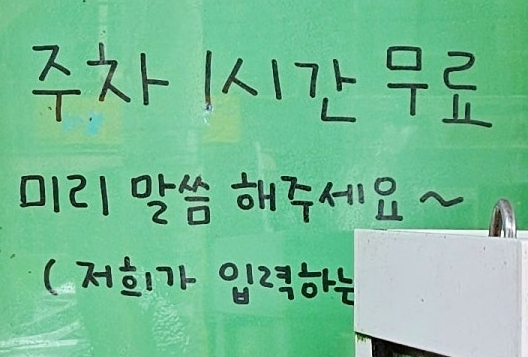 주차 1시간 무료
미리 말씀 해주세요~
(저희가 입력하는